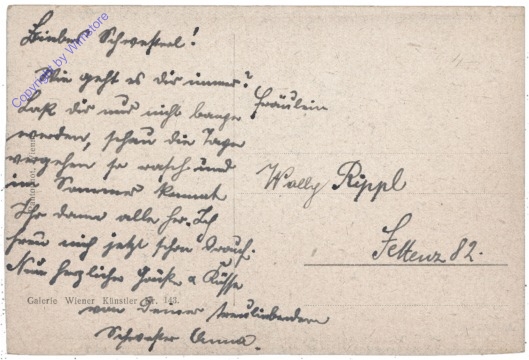 Liebes Schwesterl!
Wie geht es dir immer?
Laß dir nur nicht bange
werden, schau die Tage
vergehen so rasch und
im Sommer kommt
Ihr dann alle her. Ich
freu mich jetzt schon drauf.
Nun herzliche Grüße & Küsse
von Deiner treuliebenden
Schwester Anna.
Fräulein
Wolly Rippl
Settenz 82.
Galerie Wiener Künstler Nr. 143.
Copyright by Wim Store